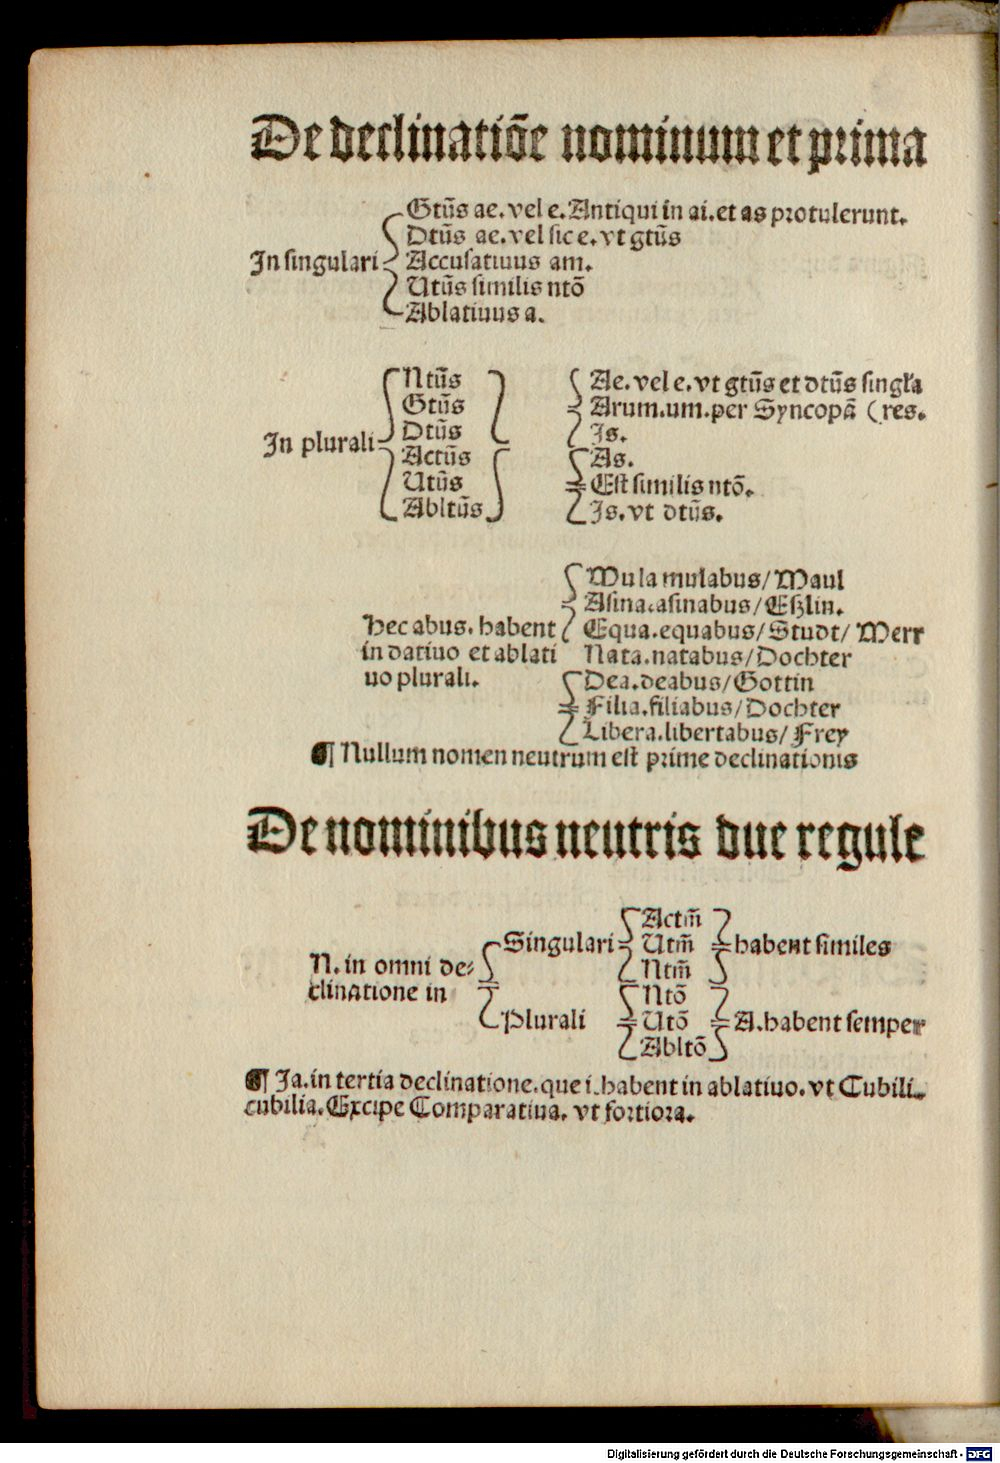 De declinatiōe nominum et prima
Gtūs ae. vel e. Antiqui in ai. et as protulerunt.
Dtūs ae. vel sic e. vt gtūs
In singulari Accusatiuus am.
Utūs similis ntō
Ablatiuus a.
Ntūs Ae. vel e. vt gtūs et dtūs singła
Gtūs Arum. um. per Syncopā (res.
Dtūs Is.
In plurali
Actūs As.
Utūs Est similis ntō.
Abltūs Is. vt dtūs.
Mula mulabus/ Maul
Asina. asinabus/ Eßlin.
Hec abus. habent Equa. equabus/ Studt/ Merr
in datiuo et ablati Nata. natabus/ Dochter
uo plurali. Dea. deabus/ Gottin
Filia. filiabus/ Dochter
Libera. libertabus/ Frey
¶ Nullum nomen neutrum est prime declinationis
De nominibus neutris due regule
Actm̄
Singulari Utm̄ habent similes
N. in omni de⸗ Ntm̄
clinatione in Ntō
Plurali Utō A. habent semper
Abltō
¶ Ia. in tertia declinatione. que i. habent in ablatiuo. vt Cubili.
cubilia. Excipe Comparatiua. vt fortiora.
Digitalisierung gefördert durch die Deutsche Forschungsgemeinschaft - DFG